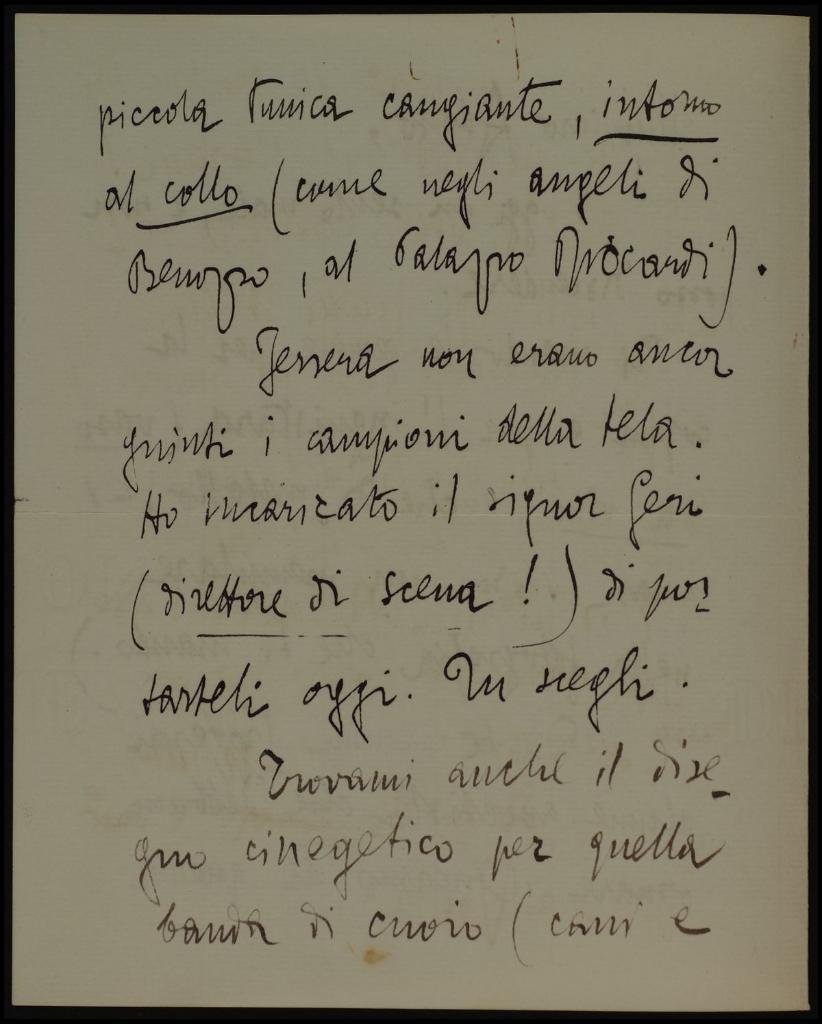 piccola tunica cangiante, intorno
al collo (come negli angeli di
Benozzo, al Palazzo Riccardi).
Iersera non erano ancor
giunti i campioni della tela.
Ho incaricato il signor Geri
(direttore di scena!) di por-
tarteli oggi. Tu scegli.
Trovami anche il dise-
gno cinegetico per quella
banda di cuoio (cani e